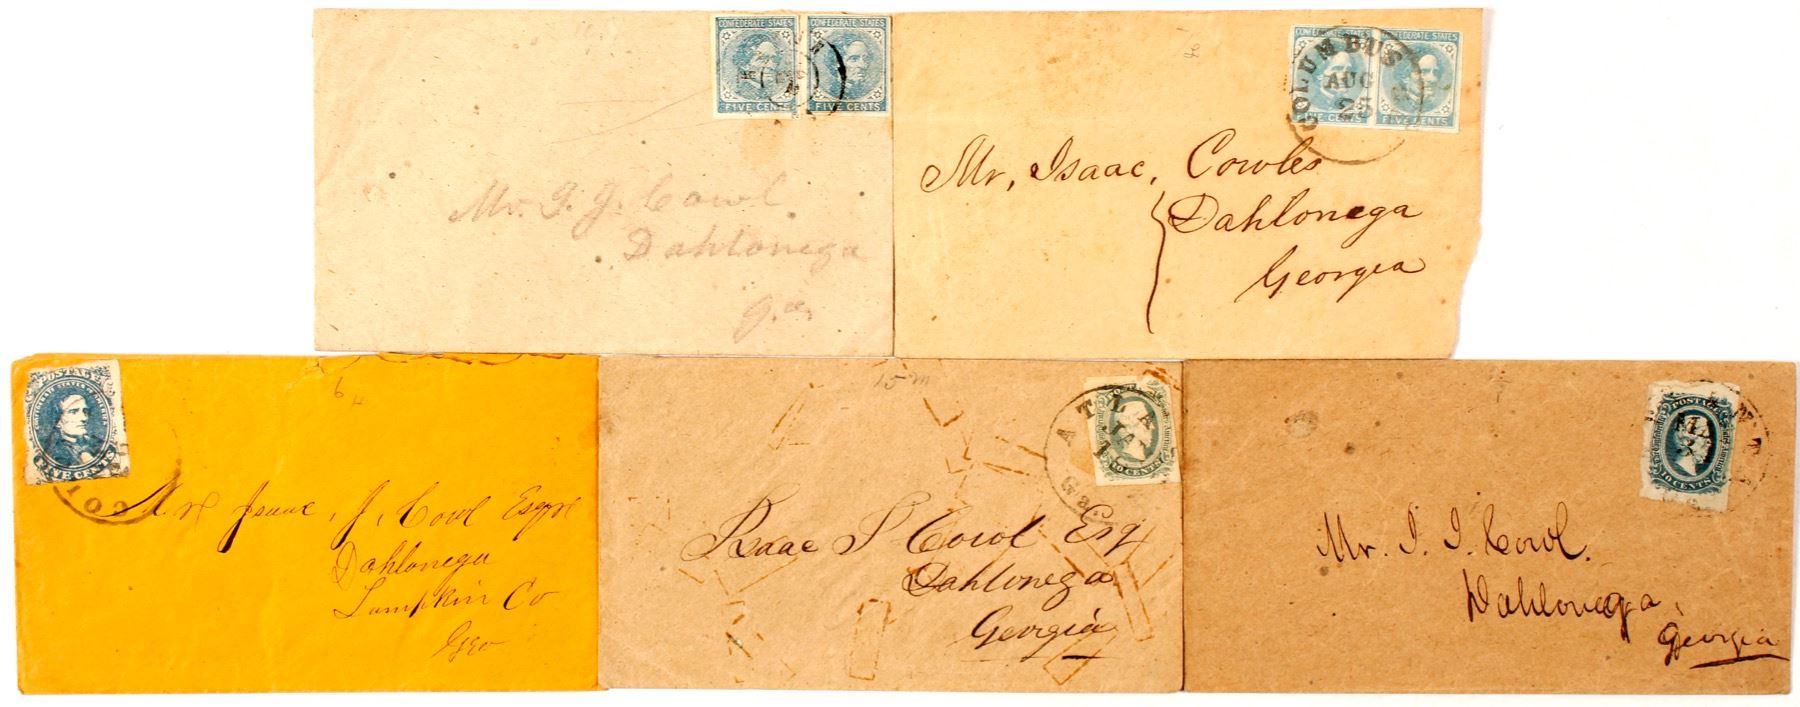 CONFEDERATE STATES
CONFEDERATE STATES
FIVE CENTS
FIVE CENTS
Mr. I. J. Cowl
Dahlonega
CONFEDERATE STATES
CONFEDERATE STATES
COLUMBUS
AUG
25
FIVE CENTS
FIVE CENTS
Mr, Isaac, Cowles
Dahlonega
Georgia
POSTAGE
CONFEDERATE STATES OF AMERICA
CENTS
COL
6
Mr Isaac, J, Cowl Esqr
Dahlonega
Lumpkin Co
Geo
15 m
ATLA
JAN
Ga.
10 CENTS
Isaac J Cowl Esq
Dahlonega
Georgia
POSTAGE
10 CENTS
Mr. I. J. Cowl.
Dahlonega,
Georgia